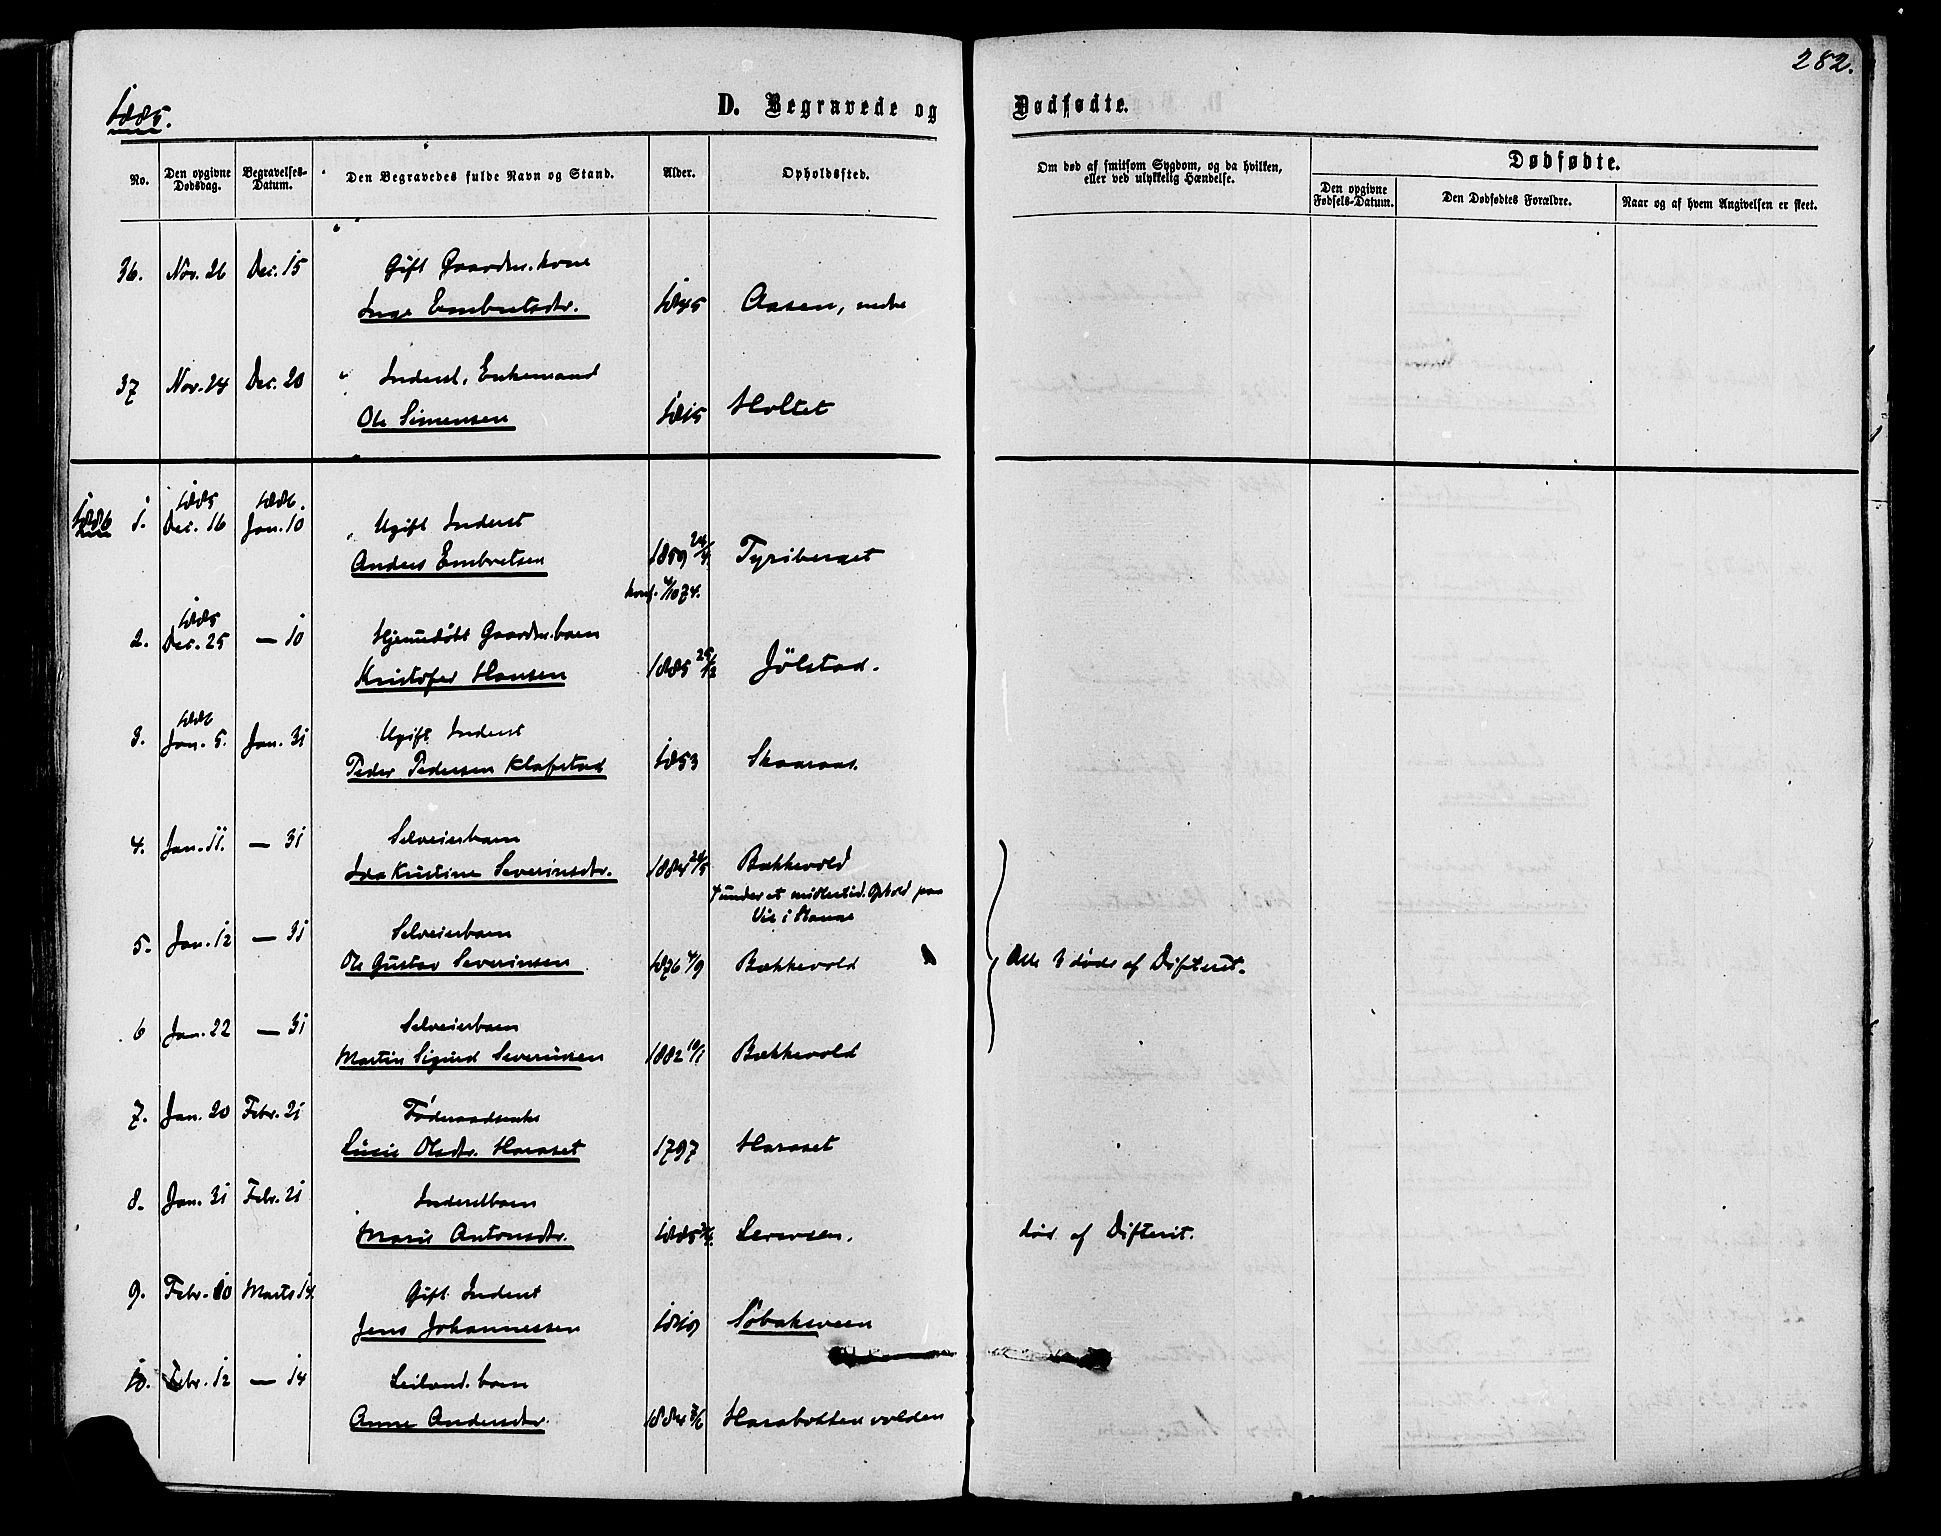 282.
1885.
D. Begravede og Dødfødte.
No.
Den opgivne Dødsdag.
Begravelses-Datum.
Den Begravedes fulde Navn og Stand.
Alder.
Opholdssted.
Om død af smitsom Sygdom, og da hvilken, eller ved ulykkelig Hændelse.
Dødfødte.
Den opgivne Fødsels-Datum.
Den Dødfødtes Forældre.
Naar og af hvem Angivelsen er skeet.
36. Nov. 26 Dec. 15 Gift Gaardm. kone
Inge Embretsdtr. 1845 Aasen, nedre
37 Nov. 24 Dec. 20 Inderst, Enkemand
Ole Simensen 1815 Holtet
1886 1. 1885 Dec. 16 1886. Jan. 10 Ugift Inderst
Anders Embretsen 1859 24/4. Tyriberget
konf. 4/10 74.
2. 1885 Dec. 25 — 10 Hjemmedøbt Gaardm. barn
Kristofer Hansen 1885 25/12 Jölstad.
3. 1886 Jan. 5. Jan. 31 Ugift Inderst
Peder Pedersen Klafstad 1853 Skaaraas.
4. Jan. 11. — 31 Selveierbarn
Ida Kristine Severinsdtr. 1884 24/5 Bækkevold
† under et midlertid. Ophold paa
Vie i Stange
5. Jan. 12 — 31 Selveierbarn
Ole Gustav Severinsen 1876 4/9 Bækkevold
Alle 3 døde af Difterit.
6 Jan. 22 — 31 Selveierbarn
Martin Sigurd Severinsen 1882 10/1 Bækkevold
7. Jan. 20 Febr. 21 Føderaadsenke
Lisie Olsdtr. Haraset 1797 Haraset
8. Jan. 31 Febr. 21 Inderstbarn
Marie Antonsdtr. 1885 Lerersen. død af Difterit.
9. Febr. 10 Marts 14. Gift Inderst
Jens Johannessen 1819 Söbakveen
10. Febr. 12 — 14 Leiland. barn
Anne Andersdtr. 1884 Harabotten volden